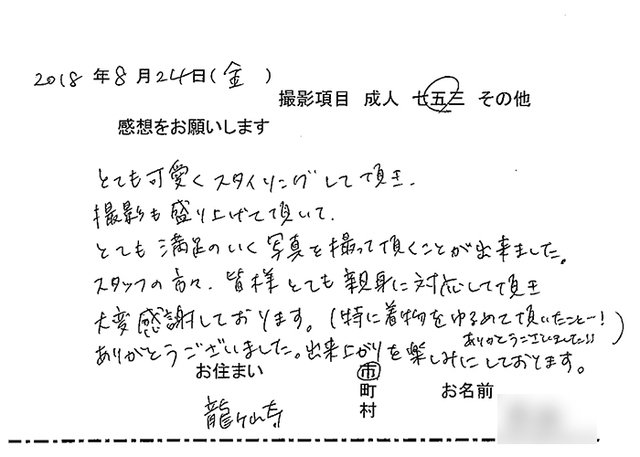 2018年8月24日(金)
撮影項目 成人 七五三 その他
感想をお願いします
とても可愛くスタイリングして頂き、
撮影も盛り上げて頂いて、
とても満足のいく写真を撮って頂くことが出来ました。
スタッフの方々、皆様とても親身に対応して頂き
大変感謝しております。(特に着物をゆるめて頂いたことー!
ありがとうございました!!)
ありがとうございました。出来上がりを楽しみにしております。
お住まい 市 お名前
町
龍ヶ崎市
村